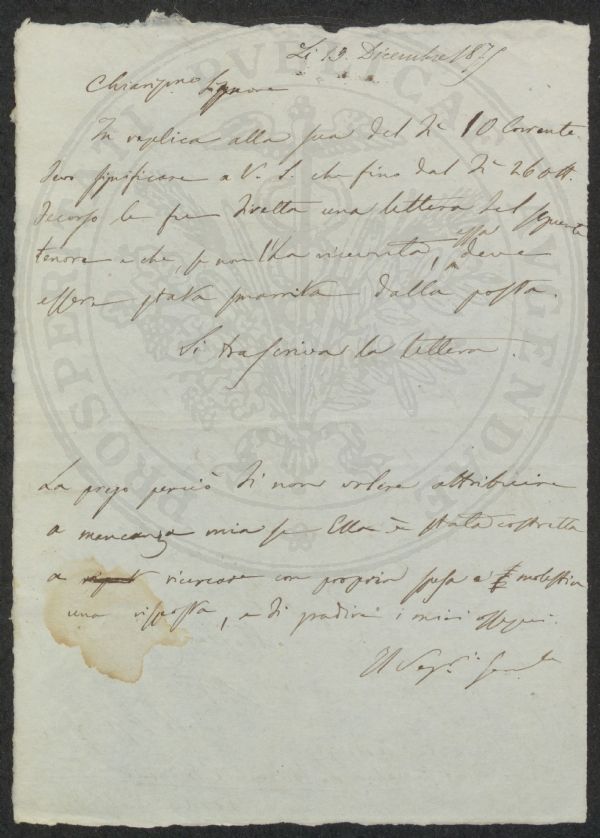 Li 13. Dicembre 18
Chiariṡmo Signore
In replica alla sua del dì 10 Corrente
devo significare a V. S. che fino dal dì 26 ott.
decorso le fu diretta una lettera del seguente
tenore e che, se non l'ha ricevuta, essa deve
essere stata smarrita dalla posta.
Si trascriva la lettera.
La prego perciò di non volere attribuire
a mancanza mia se Ella è stata costretta
a ricercare con propria spesa e molestia
una risposta, e di gradire i miei ossequi.
Il Seg.
PROSPERITATI PUBLICAE AUGENDAE